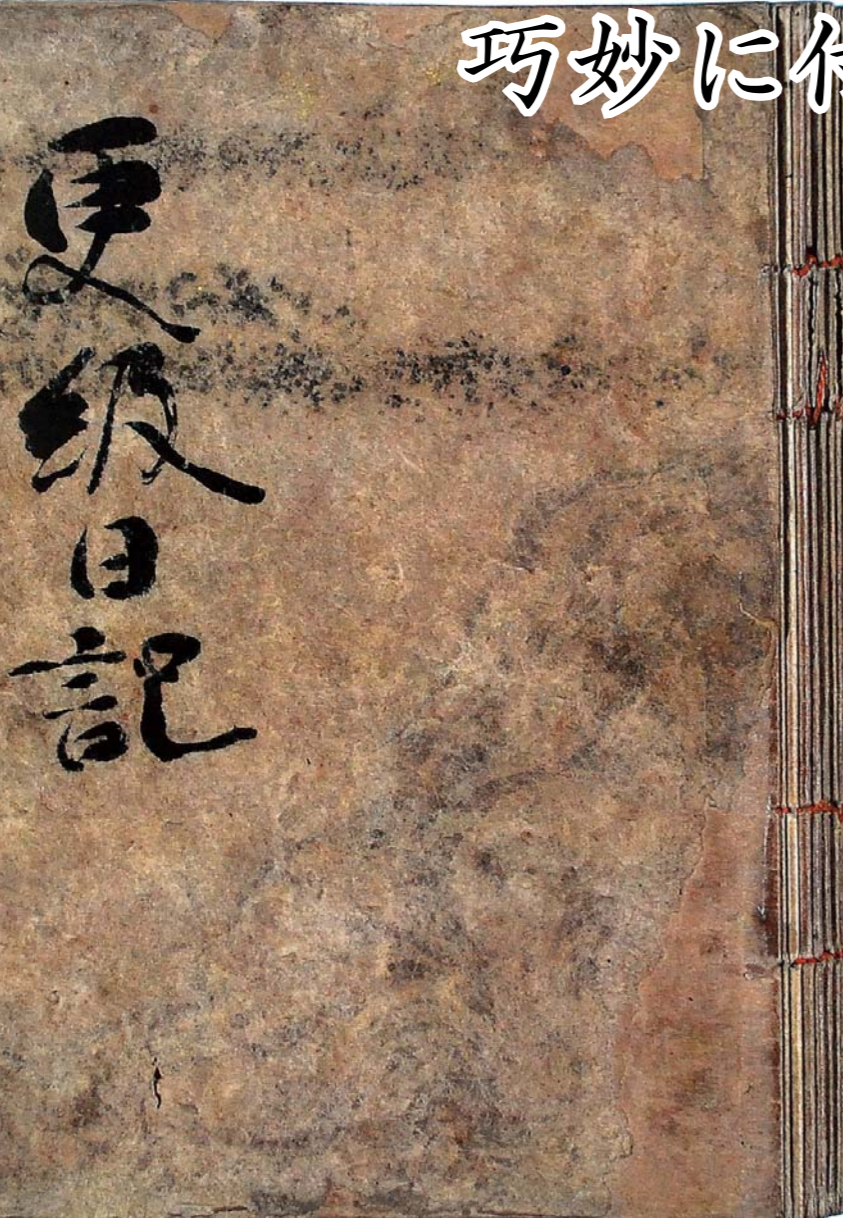 巧妙に
更級日記